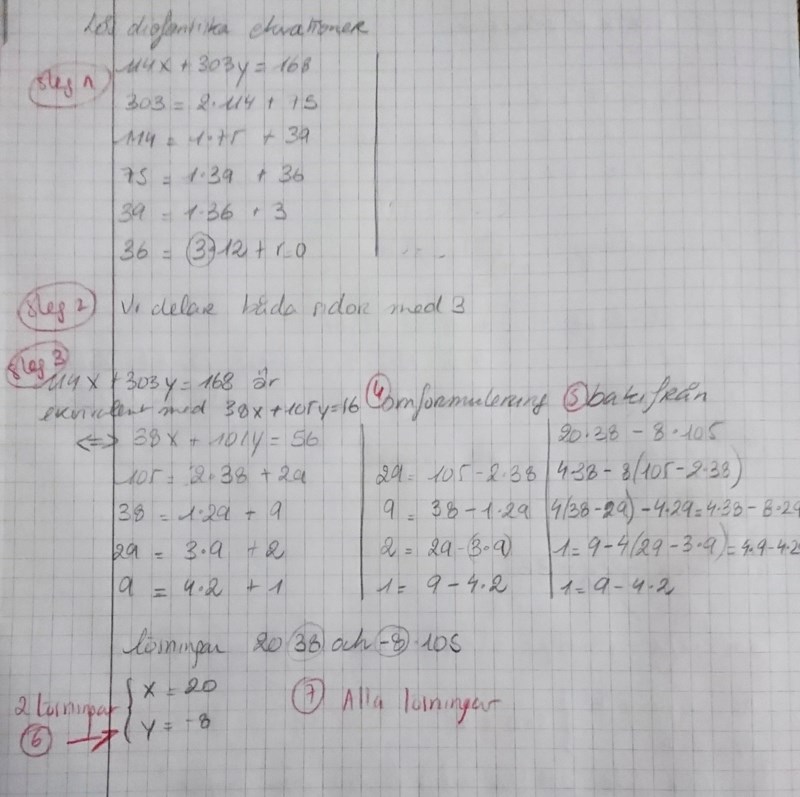 Lös diofantiska ekvationer
Steg 1
114x + 303y = 168
303 = 2·114 + 75
114 = 1·75 + 39
75 = 1·39 + 36
39 = 1·36 + 3
36 = 3·12 + r 0
Steg 2
Vi delar båda sidor med 3
Steg 3
114x + 303y = 168 är
ekvivalent med 38x + 101y = 16
⇔ 38x + 101y = 56
105 = 2·38 + 29
38 = 1·29 + 9
29 = 3·9 + 2
9 = 4·2 + 1
4 omformulering
29 = 105 - 2·38
9 = 38 - 1·29
2 = 29 - (3·9)
1 = 9 - 4·2
5 bakifrån
20·38 - 8·105
4·38 - 8(105 - 2·38)
4(38 - 29) - 4·29 = 4·38 - 8·29
1 = 9 - 4(29 - 3·9) = 4·9 - 4·2
1 = 9 - 4·2
lösningar 20 38 och -8·105
2 lösningar
6
x = 20
y = -8
7 Alla lösningar